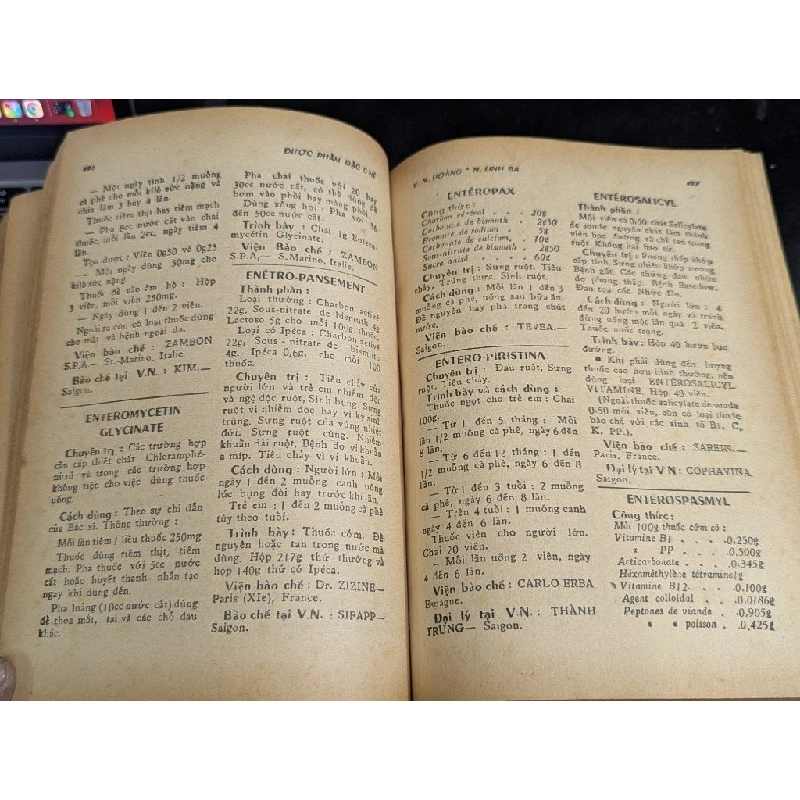 ĐƯỢC PHẨM ĐẶC CHẾ
— Một ngày tính 1/2 muỗng
cà phê cho mỗi kilô sức nặng và
chia làm 3 hay 4 lần.
Thuốc tiêm thịt hay tiêm mạch
— Pha 8cc nước cất vào chai
thuốc, mỗi lần 2cc, ngày tiêm 4
lần.
Tọa dược: Viên 0g50 và 0g25
— Mỗi ngày dùng 50mg cho
kilô sức nặng
Thuốc để vào âm hộ : Hộp
3 viên, mỗi viên 250mg.
— Ngày dùng 1 đến 2 viên.
Ngoài ra còn có loại thuốc dùng
cho mắt và bệnh ngoài da.
Viện bào chế : ZAMBON
S.P.A — St.-Marino, Italie
Bào chế tại V.N. : KIM—
Saigon.
ENTEROMYCETIN
GLYCINATE
Chuyên trị : Các trường hợp
cần cấp thiết chất Chloramphé-
nicol và trong các trường hợp
không tiện cho việc dùng thuốc
uống.
Cách dùng : Theo sự chỉ dẫn
của Bác sĩ. Thông thường :
Mỗi lần tiêm 1 liều thuốc 250mg
Thuốc dùng tiêm thịt, tiêm
mạch. Pha thuốc với 5cc nước
cất hoặc huyết thanh nhân tạo
ngay khi dùng đến.
Pha loãng (10cc nước cất) dùng
để thoa mắt, tai và các chỗ đau
khác.
Pha chai thuốc với 20 hay
30cc nước cất, có thể dùng để
bơm vào phổi hay màng phổi.
Dùng xông hơi : Pha với 36
đến 50cc nước cất.
Trình bày : Chai 1g Entero-
mycétin Glycinate.
Viện Bào chế : ZAMBON
S.P.A.— S.Marino, Italie.
ENTÉRO-PANSEMENT
Thành phần :
Loại thường : Charbon activé
22g, Sous-nitrate de bismuth 4g
Lactose 5g cho mỗi 100g thuốc
Loại có Ipéca : Charbon activé
22g, Sous-nitrate de bismuth
4g, Ipéca 0,6g, cho mỗi 100
thuốc
Chuyên trị : Tiêu chảy của
người lớn và trẻ em nhiễm độc
và ngộ độc ruột, Sình bụng. Sưng
ruột vì nhiễm độc hay vì ký sinh
trùng. Sưng ruột của vùng nhiệt
đới. Sưng ruột cùng. Nhiễm
khuẩn dài ruột, Bệnh do vi khuẩn
a mip. Tiêu chảy vì vi khuẩn.
Cách dùng : Người lớn : Mỗi
ngày 1 đến 2 muỗng canh uống
lúc bụng đói hay trước khi ăn.
Trẻ em : 1 đến 2 muỗng cà phê
tùy theo tuổi.
Trình bày: Thuốc cốm. Để
nguyên hoặc tan trong nước mà
dùng. Hộp 217g thứ thường và
hộp 140g thứ có Ipéca.
Viện bào chế : Dr. ZIZINE—
Paris (XIe), France.
Bào chế tại V.N. : SIFAPP—
Saigon.
V.N. HOÀNG * N. LINH BA
ENTÉROPAX
Công thức :
Charbon végétal . . . 20g
Carbonate de bismuth 2g50
Bromure de sodium . 5g
Carbonate de calcium, . 10g
Sous-nitrate de bismuth . 2g50
Sucre anisé . . . . 60g
Chuyên trị : Sưng ruột. Tiêu
chảy. Trúng thực. Sình ruột.
Cách dùng : Mỗi lần 1 đến 3
muỗng cà phê, uống sau bữa ăn.
Để nguyên hay pha trong chút
nước.
Viện bào chế : TEVBA.—
Saigon.
ENTERO-PIRISTINA
Chuyên trị : Đau ruột, Sưng
ruột. Tiêu chảy.
Trình bày và cách dùng :
Thuốc ngọt cho trẻ em : Chai
100g.
— Từ 1 đến 5 tháng : Mỗi
lần 1/2 muỗng cà phê, ngày 6 đến
8 lần.
— Từ 6 đến 12 tháng : 1 đến
1 1/2 muỗng cà phê, ngày 6 đến 8
lần.
— Từ 1 đến 3 tuổi : 2 muỗng
cà phê, ngày 6 đến 8 lần.
— Trên 4 tuổi : 1 muỗng canh
ngày 4 đến 6 lần.
Thuốc viên cho người lớn.
Chai 20 viên.
— Mỗi lần uống 2 viên, ngày
4 đến 6 lần.
Viện bào chế : CARLO ERBA
Espagne.
Đại lý tại V.N. : THÀNH
TRUNG— Saigon.
ENTÉROSALICYL
Thành phần :
Mỗi viên có 0,50 chất Salicylate
de soude nguyên chất làm thành
viên bọc đường và chỉ tan trong
ruột. Không hại bao tử.
Chuyên trị : Phong thấp khớp
cấp tính, Sưng nhiều khớp xương.
Bệnh gút. Các chứng đau nhức
do phong thấp. Bệnh Basedow.
Đau tọa cốt. Nhức đầu.
Cách dùng : Người lớn : 4
đến 20 hoàn một ngày và tránh
đừng uống một lần quá 2 viên.
Thuốc nước trong.
Trình bày: Hộp 40 hoàn bọc
đường.
Khi phải dùng đến lượng
thuốc cao hơn bình thường, nên
dùng loại ENTÉROSALICYL
VITAMINE. Hộp 43 viên.
(Ngoài thuốc salicylate de soude
0.50 mỗi viên, còn có loại thuốc
bào chế với các sinh tố B1, C,
K, PP.).
Viện bào chế : SAREIN.—
Paris, France.
Đại lý tại V.N: COPHAVINA
Saigon.
ENTEROSPASMYL
Công thức :
Mỗi 100g thuốc cốm có :
Vitamine B1 . . . 0.250g
" PP . . . 0.500g
Acticarbonate . . 0.345g
Héxaméthylène tétramine 1g
Vitamine B12 . . 0.100g
Agent colloidal . . 0.0186g
Peptones de viande . 0,905g
" " poisson . 0,425g